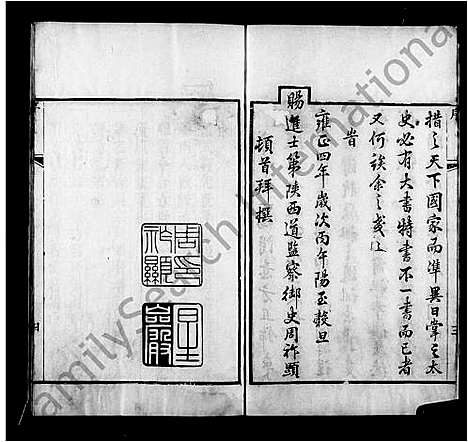 序
措之天下國家而準異日掌之太
史必有大書特書不一書而已者
又何談余之
昔
雍正四年歲次丙午陽正穀旦
賜進士第陝西道監察御史周祚顯
頓首拜撰
周
祚顯
FamilySearch International